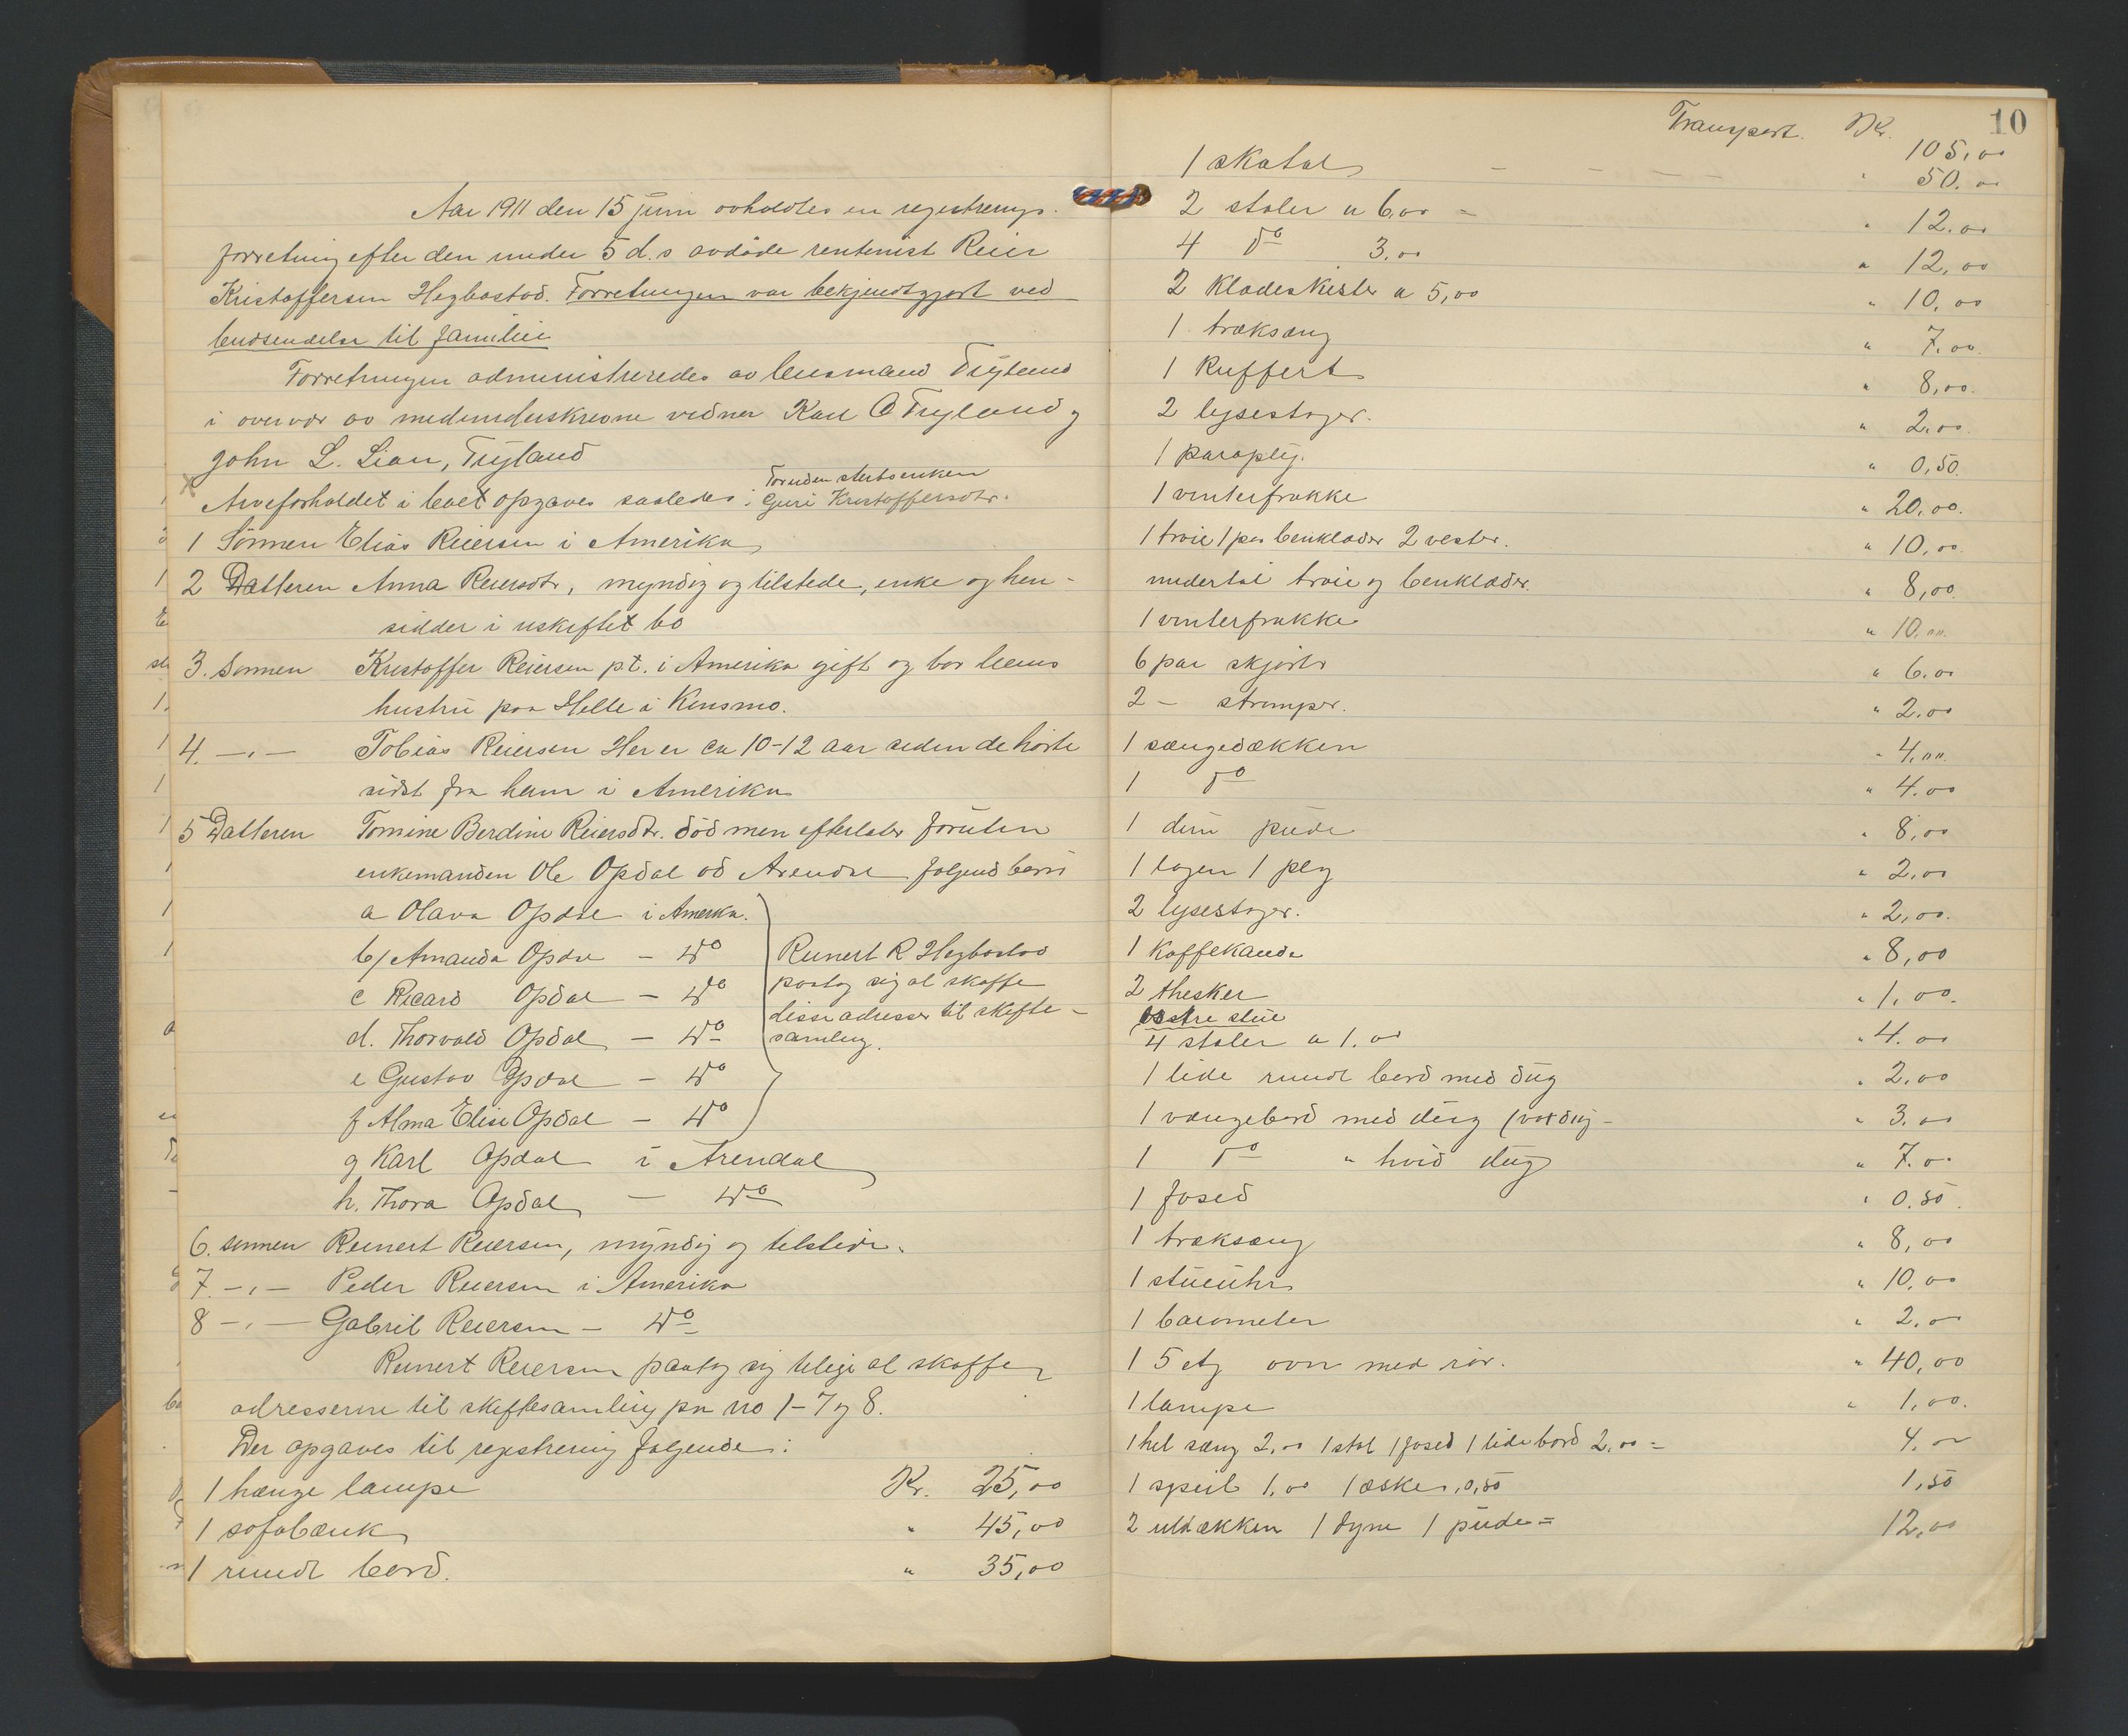 Aar 1911 den 15 juni avholdtes en registrerings-
forretning efter den under 5 d.s avdöde rentenist Reier
Kristoffersen Hegbostad. Forretningen var bekjendtgjort ved
budsendelse til familien
Forretningen administreredes av lensmand Trÿland
i overvær av medunderskrevne vidner Karl O Tryland og
John L. Lian, Trÿland
Foruden sterbsenken
Arveforholdet i boet opgaves saaledes: Guri Kristoffersdtr.
1 Sönnen Elias Reiersen i Amerika
2 Datteren Anna Reiersdtr, myndig og tilstede, enke og hen-
sidder i uskiftet bo
3. Sønnen Kristoffer Reiersen pt. i Amerika gift og bor hans
hustru paa Helle i Konsmo.
4. -"- Tobias Reiersen Her er ca 10-12 aar siden de hörte
sidst fra ham i Amerika
5 Datteren Tomine Berdine Reiersdtr. död men efterlater foruten
enkemanden Ole Opdal ad Arendal følgend børn
a Olava Opdal i Amerika.
b/ Amanda Opdal - do
c Ricard Opdal - do
d. Thorvald Opdal - do
e Gustav Opdal - do
f Alma Elise Opdal - do
Reinert R Hegbostad
paatog sig at skaffe
disse adresser til skifte-
samling.
g Karl Opdal i Arendal
h. Thora Opdal - do
6. sønnen Reinert Reiersen, myndig og tilstede.
7. -"- Peder Reiersen i Amerika
8 -"- Gabriel Reiersen - do
Reinert Reiersen paatog sig tillige at skaffe
adresserne til skiftesamling paa no 1-7 og 8.
Der opgaves til registrering følgende:
1 hænge lampe Kr. 25,00
1 sofabænk " 45,00
1 rundt bord. " 35,00
10
Transport. Kr. 105,00
1 skatol " 50.00
2 stoler a 6,00 - " 12.00
4 do 3,00 " 12,00
2 Klædeskister a 5,00 " 10,00
1 træksæng " 7.00
1 Kuffert " 8,00.
2 lysestager. " 2.00.
1 paraply. " 0,50.
1 vinterfrakke " 20,00.
1 trøie 1 par benklæder 2 vester. " 10,00.
undertøi trøie og benklæder. " 8,00.
1 vinterfrakke " 10,00.
6 par skjorter " 6.00
2 - strømper. " 2.00
1 sængedækken " 4,00.
1 do " 4.00
1 dun pude " 8,00
1 lagen 1 plag " 2,00
2 lysestager. " 2,00.
1 Kaffekande " 8,00
2 theskeer " 1,00.
østre stue
4 stoler a 1.00 " 4.00
1 lide rundt bord med dug " 2,00
1 vængebord med dug (voxdug- " 3.00
1 do " hvid dug " 7.00
1 fosed " 0.50.
1 træksæng " 8,00
1 stueuhr " 10,00
1 barometer " 2.00
1 5 etg ovn med rör. " 40,00
1 lampe " 1,00.
1 hel sæng 2,00 1 stol 1 fosed 1 lide bord 2,00 = 4.00
1 speil 1,00 1 æske 0,50 1,50
2 uldtækken 1 dyne 1 pude = 12,00